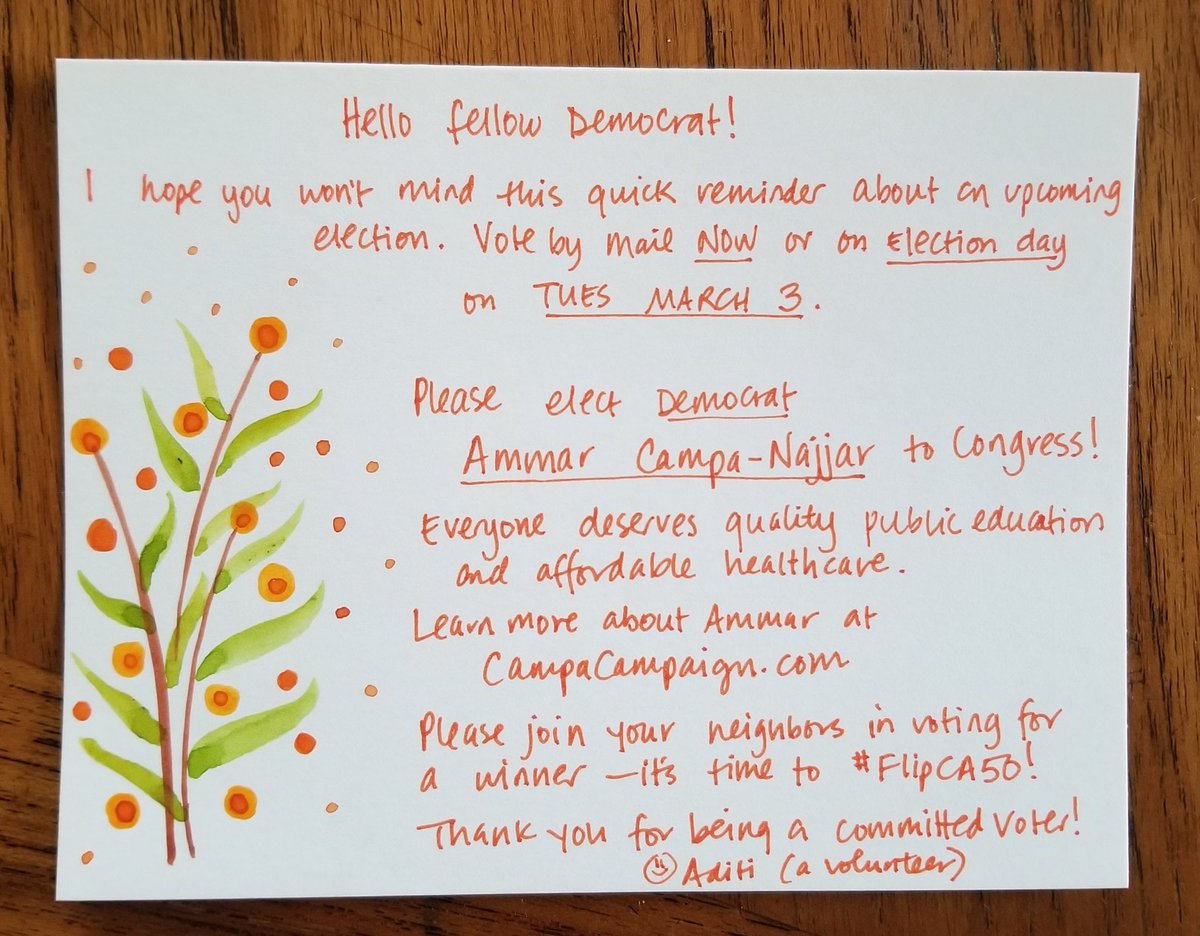 Hello fellow Democrat!
I hope you won't mind this quick reminder about an upcoming
election. Vote by mail NOW or on Election day
on TUES MARCH 3.
Please elect Democrat
Ammar Campa-Najjar to Congress!
Everyone deserves quality public education
and affordable healthcare.
Learn more about Ammar at
CampaCampaign.com
Please join your neighbors in voting for
a winner — it's time to #FlipCA50!
Thank you for being a committed voter!
☺ Aditi (a volunteer)